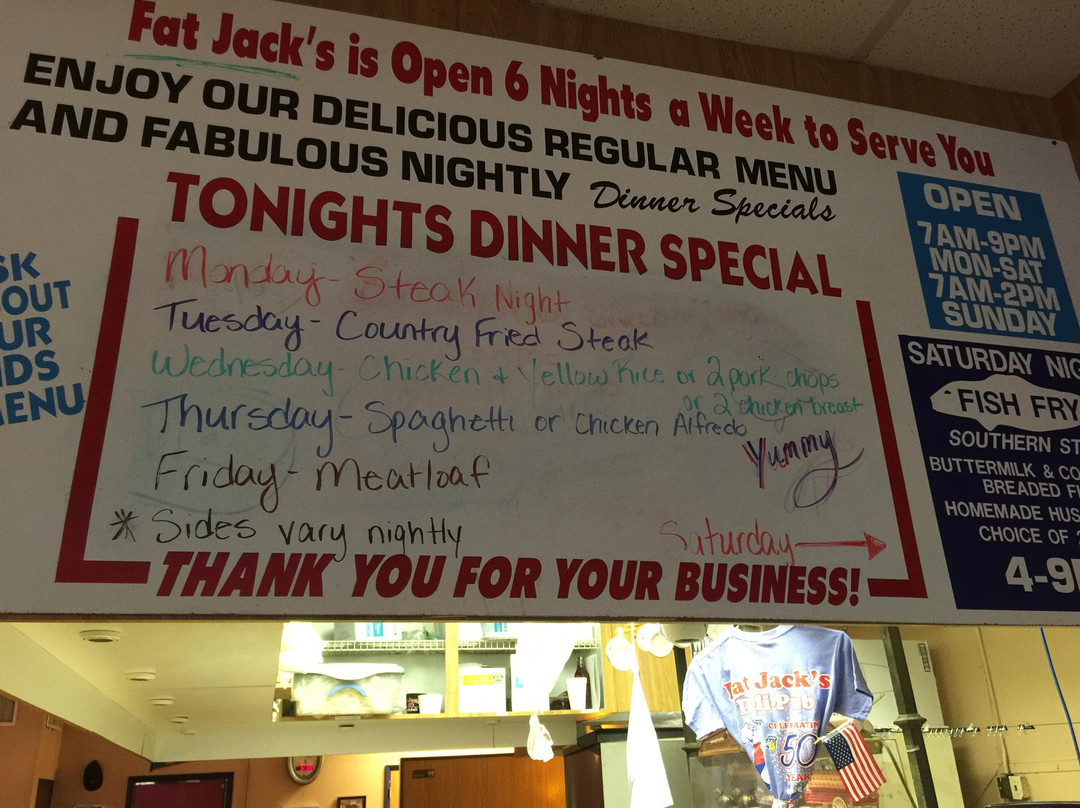 Fat Jack's is Open 6 Nights a Week to Serve You
ENJOY OUR DELICIOUS REGULAR MENU
AND FABULOUS NIGHTLY Dinner Specials
TONIGHTS DINNER SPECIAL
Monday - Steak Night
Tuesday - Country Fried Steak
Wednesday - Chicken + Yellow Rice or 2 pork chops
or 2 chicken breast
Thursday - Spaghetti or Chicken Alfredo
Yummy
Friday - Meatloaf
* Sides vary nightly
Saturday
THANK YOU FOR YOUR BUSINESS!
SK
OUT
UR
IDS
MENU
OPEN
7AM-9PM
MON-SAT
7AM-2PM
SUNDAY
SATURDAY NIG
FISH FRY
SOUTHERN ST
BUTTERMILK & CO
BREADED FI
HOMEMADE HUS
CHOICE OF
4-9
Fat Jack's
50
YEARS